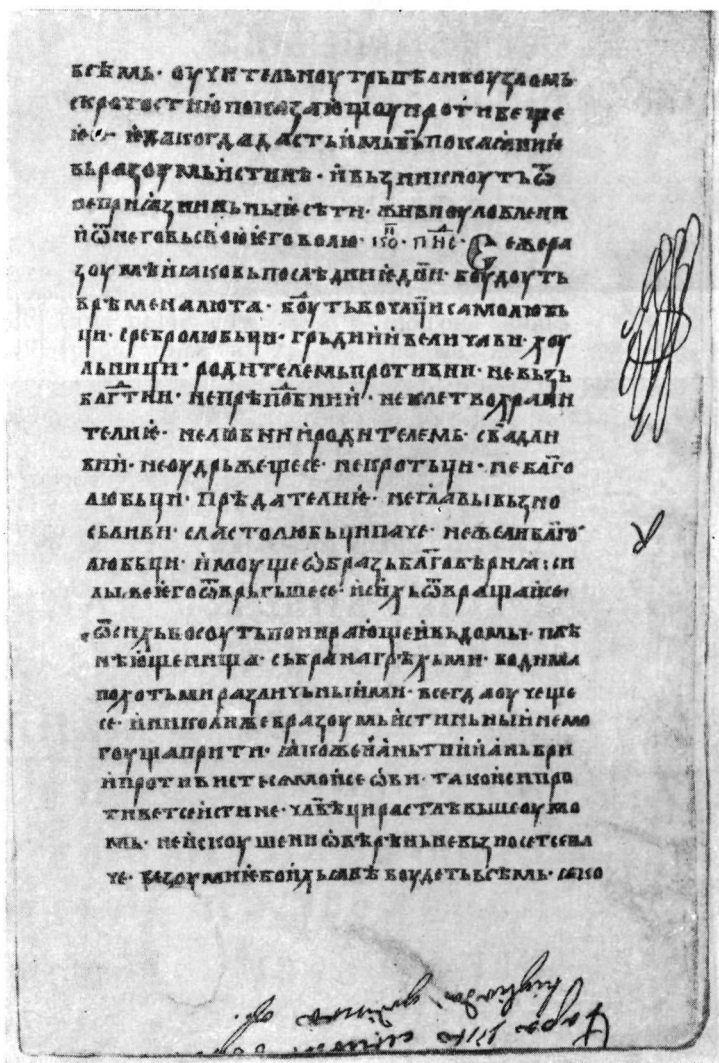 всѣмь· оучительноу трьпѣливоу зломь
с кротостию показающоу противеще
ѥда когда дасть имь б҃ь покаꙗниѥ
вь разоумь истинѣ· и вьзникноуть ѿ
неприꙗзниньныѥ сѣти· живи оуловлени
и ѿ него вь свою ѥго волю· се же ра
зоумѣи ꙗко вь послѣднѥѥ дни· боудоуть
врѣмена люта· боуть бо чл҃ци самолюбь
ци· сребролюбьци· грьдии и величави· хоу
льници· родителемь противни· невьзь
бл҃гⷣтни· непрѣпⷣобнии· неклетвохрани
телниѥ· нелюбнии родителемь· свадли
вии· неоудрьжещесе· некротьци· небл҃го
любьци· прѣдателниѥ· неглавы вьзно
сьливи· сластолюбьци паче· нежели бл҃го
любьци· имоуще ѡбразь бл҃говѣриꙗ· си
лы же ѥго ѿврьгьшесе· и сихь ѿвращаисе·
ѿ сихь бо соуть понирающеи вь домы· плѣ
нѣюще нища· събрана грѣхьми· водима
похотьми различьныими· всегда оучеще
се· и николиже вь разоумь истиньныи не мо
гоуща прити· ꙗкоже иꙗнь
и противистасе моисеѡви· тако и си про
тиветсе истине· чл҃вѣци растлѣвьше оумо
мь· не искоушени ѡ вѣрѣ
че· безоумиѥ бо ихь ꙗвѣ боудеть всѣмь· ꙗко